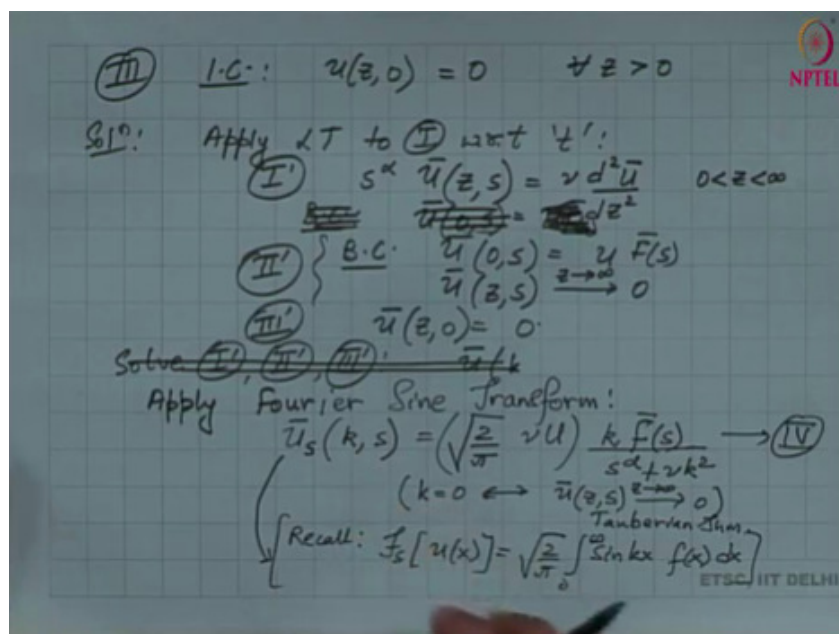 III I.C.: u(z,0) = 0 ∀ z > 0
NPTEL
Solⁿ: Apply LT to I w.r.t 't':
I' s^α ū(z,s) = ν d²ū/dz² 0<z<∞
II' { B.C. ū(0,s) = U F̄(s)
ū(z,s) z→∞ ⟶ 0
III' ū(z,0) = 0.
Solve I', II', III': ū(k
Apply Fourier Sine Transform:
ū_s(k,s) = (√(2/π) νU) k F̄(s)/(s^α + νk²) ⟶ IV
(k=0 ⟷ ū(z,s) z→∞ ⟶ 0)
Tauberian Thm.
[Recall: F_s[u(x)] = √(2/π) ∫₀^∞ Sin kx f(x) dx]
ETSC, IIT DELHI